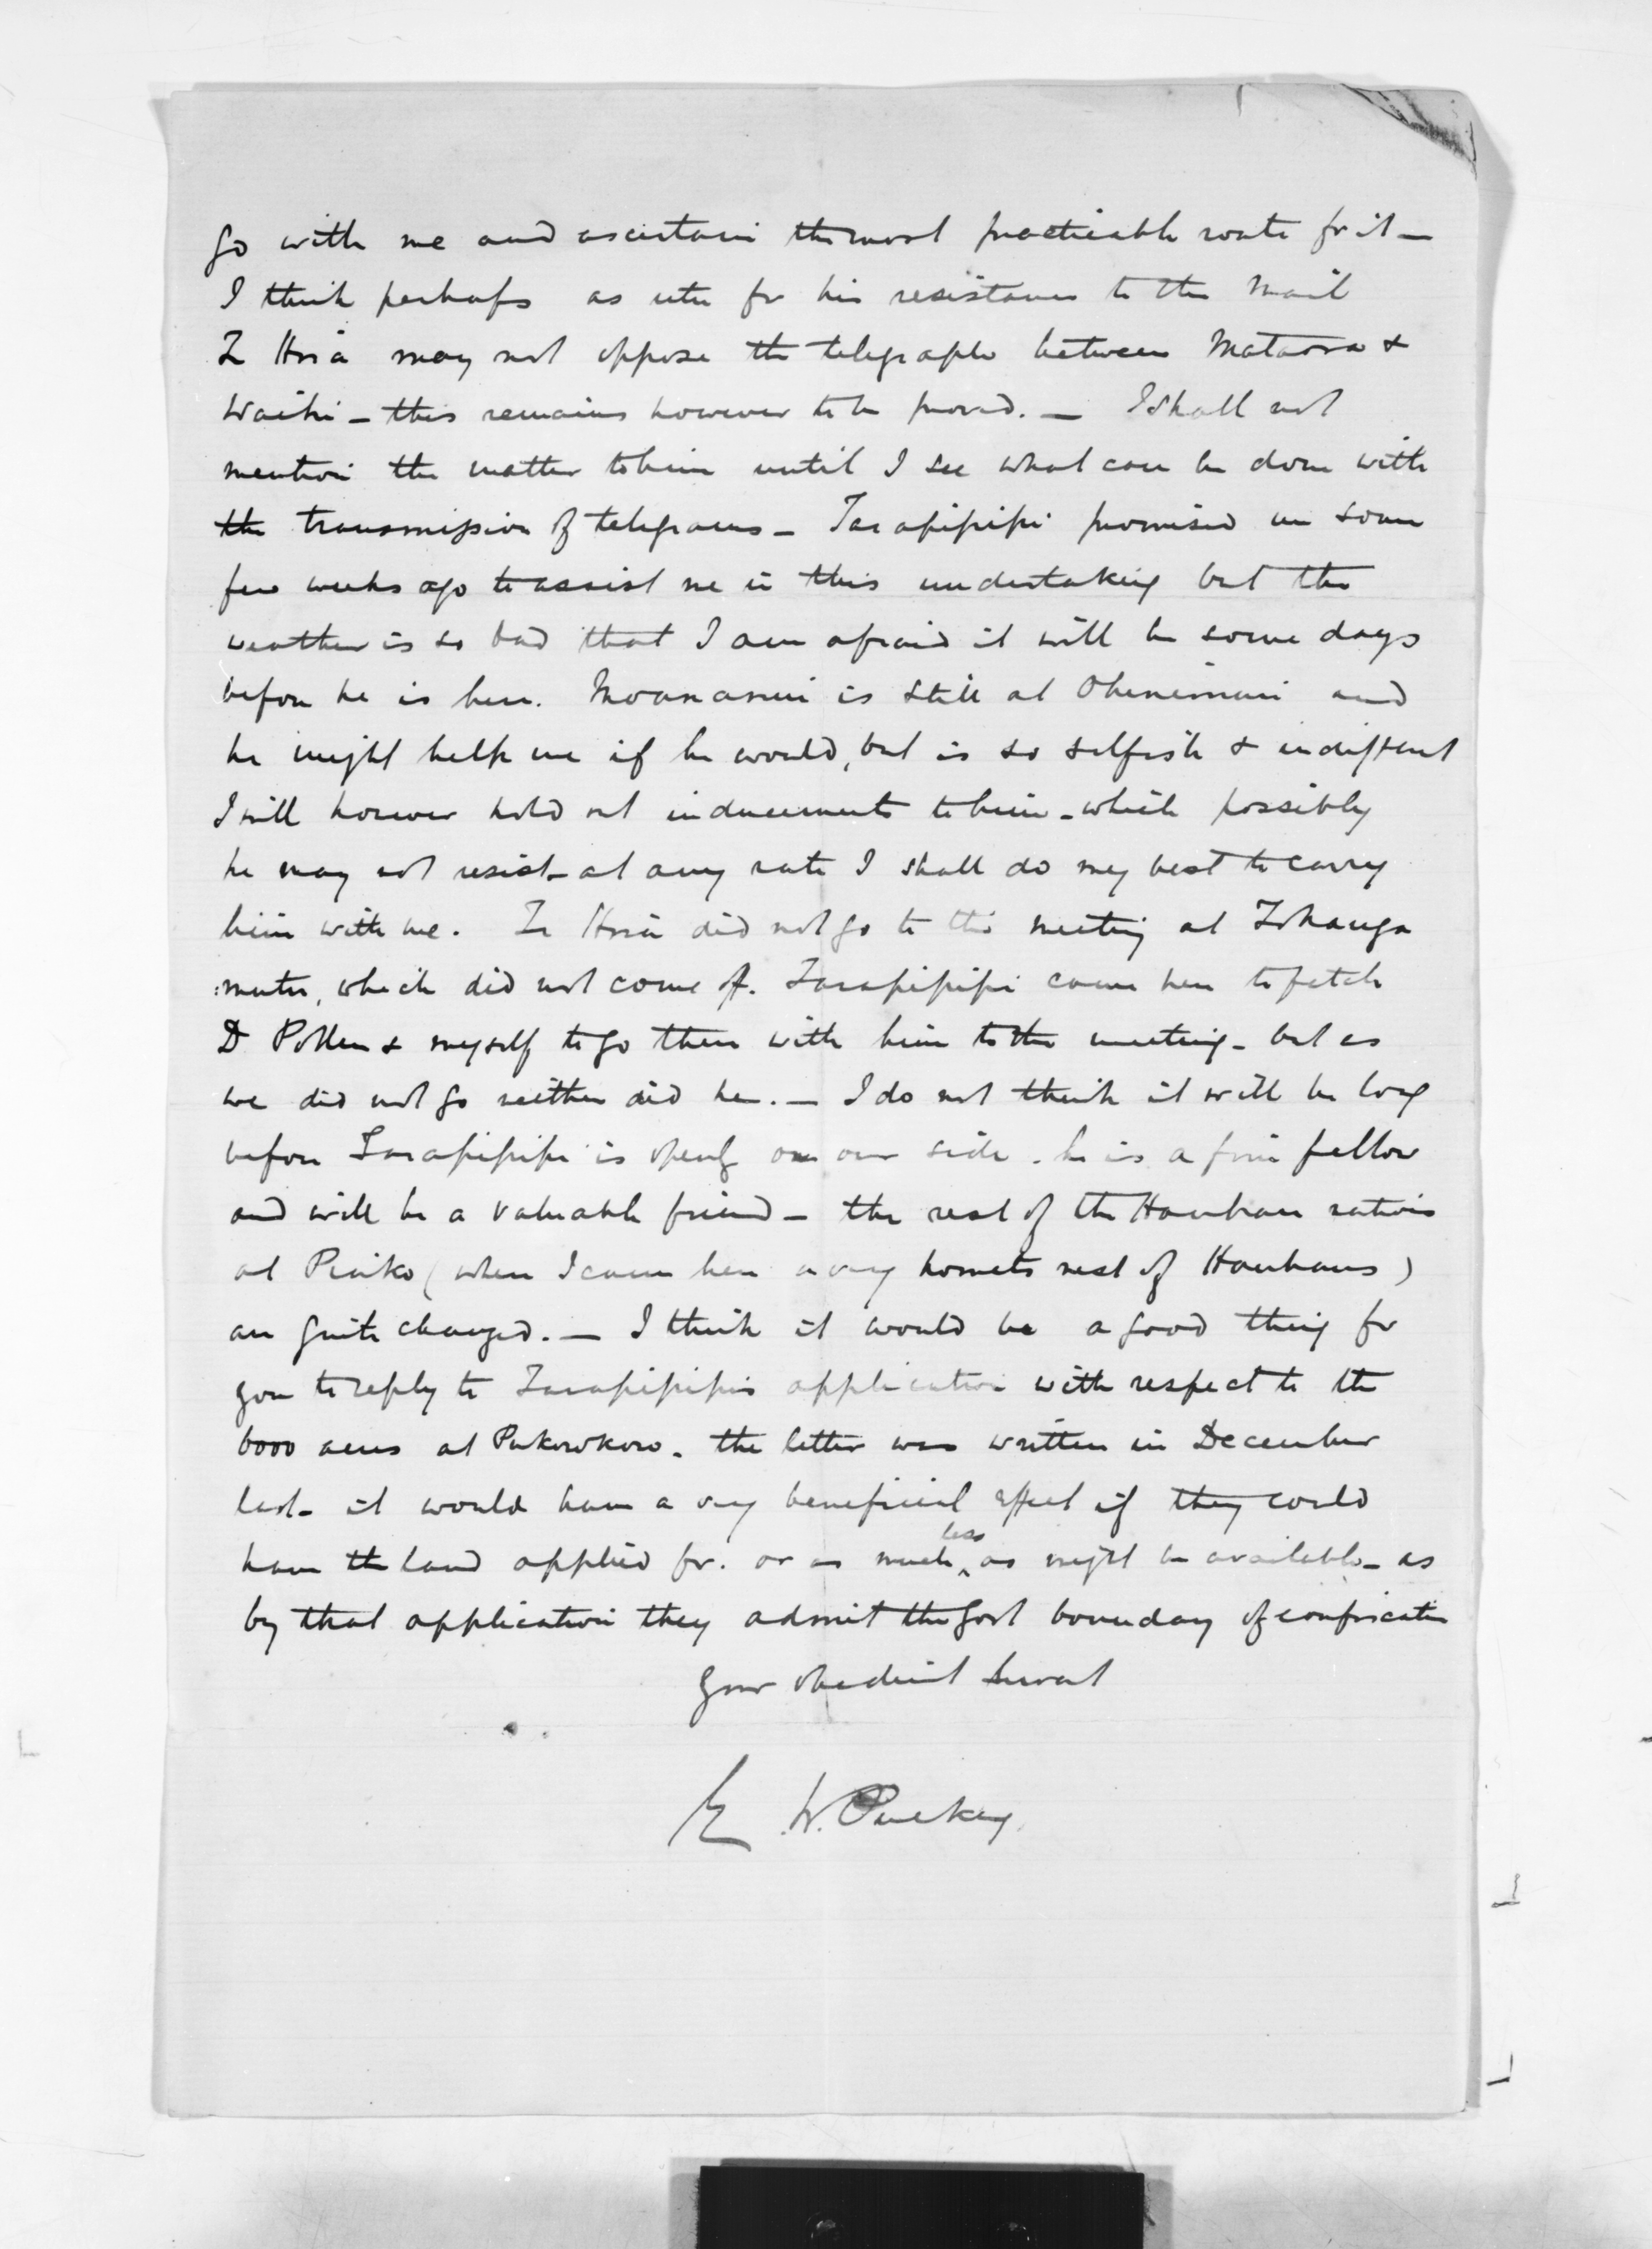 go with me and ascertain the most practicable route for it —
I think perhaps as utu for his resistance to the mail
Te Hira may not oppose the telegraph between Mataora &
Waihi — this remains however to be proved. — I shall not
mention the matter to him until I see what can be done with
the transmission of telegrams — Tarapipipi promised me some
few weeks ago to assist me in this undertaking but the
weather is so bad that I am afraid it will be some days
before he is here. Moananui is still at Ohinemuri and
he might help me if he would, but is so selfish & indifferent
I will however hold out inducements to him - which possibly
he may not resist - at any rate I shall do my best to carry
him with me. Te Hira did not go to the meeting at Tokanga
:mutu, which did not come off. Tarapipipi came here to fetch
Dr Pollen & myself to go there with him to the meeting - but as
we did not go neither did he. — I do not think it will be long
before Tarapipipi is openly on our side - he is a fine fellow
and will be a valuable friend — the rest of the Hauhau natives
at Piako (when I came here a very hornets nest of Hauhaus)
are quite changed. — I think it would be a good thing for
you to reply to Tarapipipi's application with respect to the
6000 acres at Pukorokoro - the letter was written in December
last - it would have a very beneficial effect if they could
have the land applied for. or as much less as might be available - as
by that application they admit the Govt boundary of confiscation
Your obedient Servant
E. W. Puckey